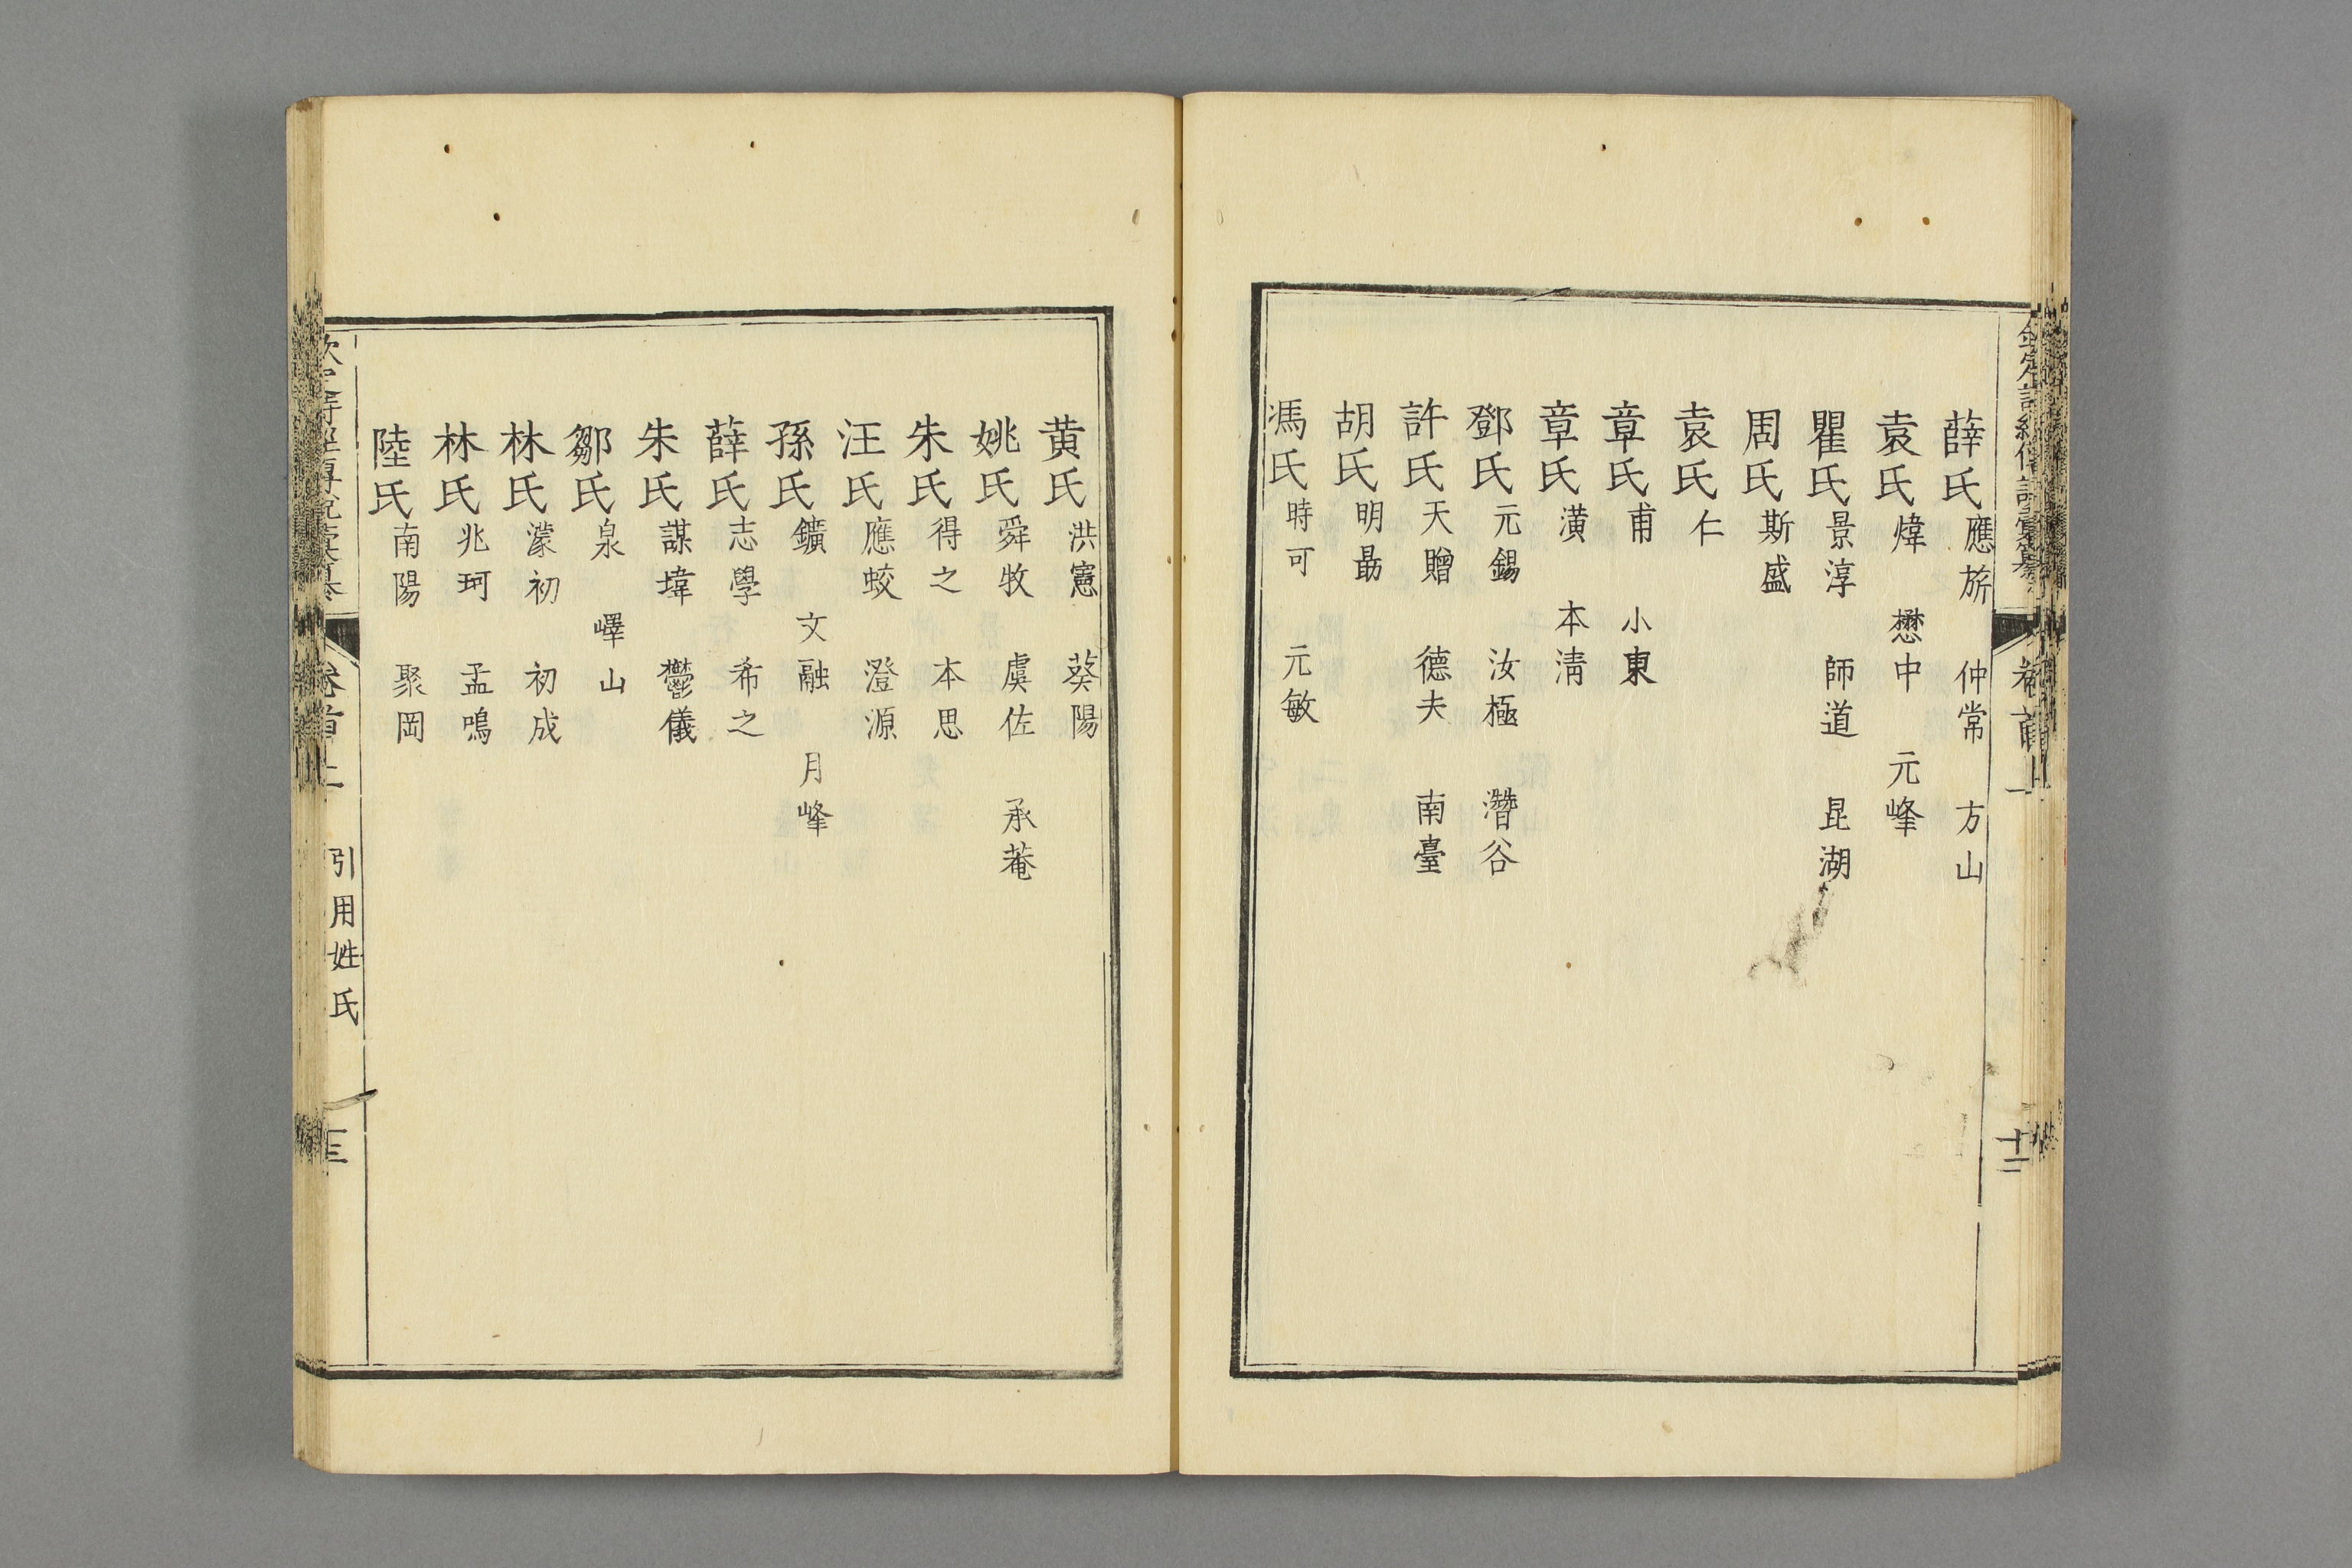 薛氏應旂 仲常 方山
袁氏煒 懋中 元峰
瞿氏景淳 師道 昆湖
周氏斯盛
袁氏仁
章氏甫 小東
章氏潢 本清
鄧氏元錫 汝極 潛谷
許氏天贈 德夫 南臺
胡氏明勗
馮氏時可 元敏
十二
黃氏洪憲 葵陽
姚氏舜牧 虞佐 承菴
朱氏得之 本思
汪氏應蛟 澄源
孫氏鑛 文融 月峰
薛氏志學 希之
朱氏謀㙔 鬱儀
鄒氏泉 嶧山
林氏濛初 初成
林氏兆珂 孟鳴
陸氏南陽 聚岡
卷首上 引用姓氏